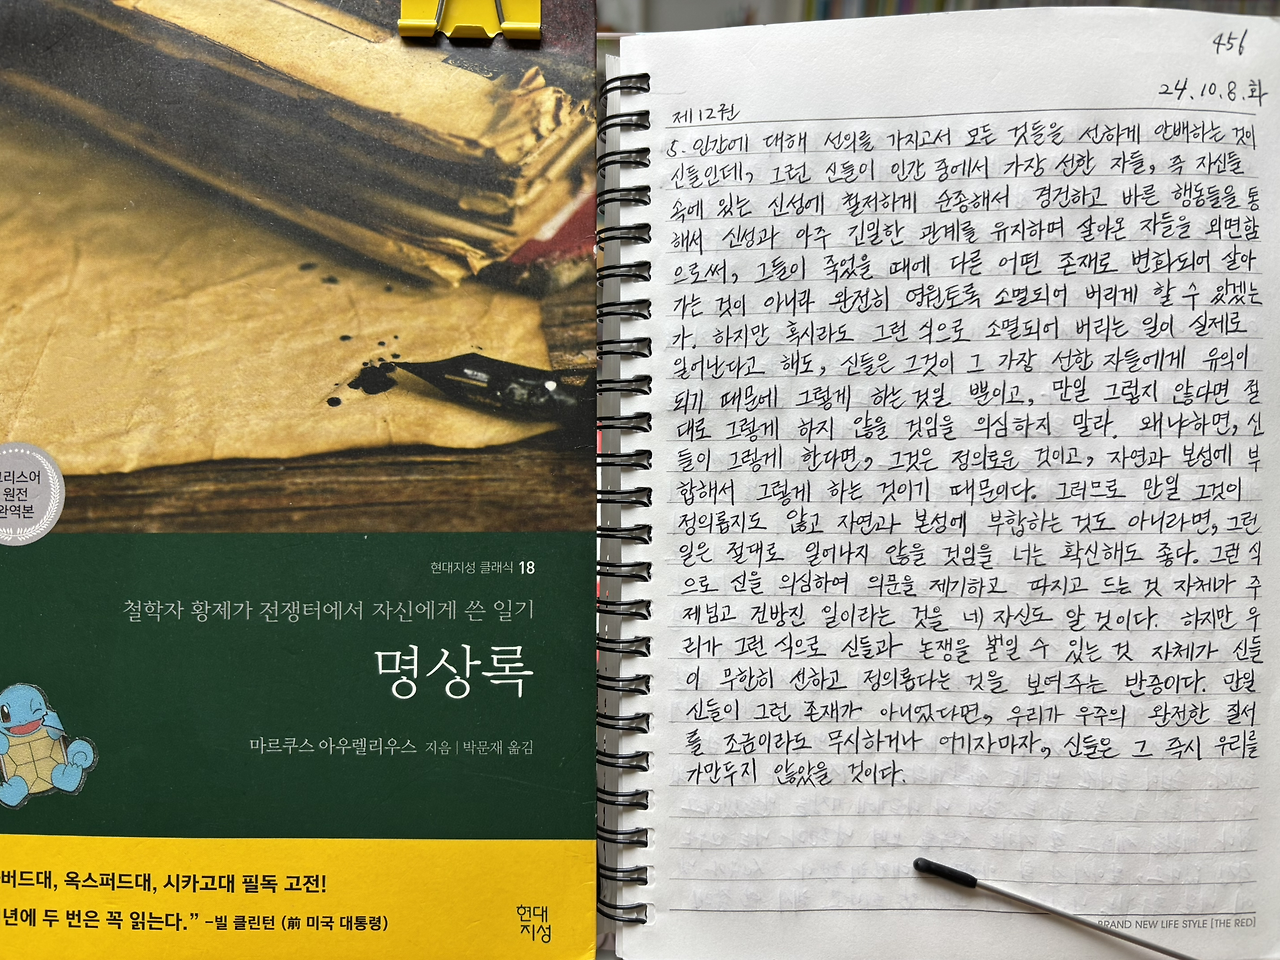 그리스어
원전
완역본
현대지성 클래식 18
철학자 황제가 전쟁터에서 자신에게 쓴 일기
명상록
마르쿠스 아우렐리우스 지음 | 박문재 옮김
버드대, 옥스퍼드대, 시카고대 필독 고전!
년에 두 번은 꼭 읽는다.” –빌 클린턴 (前 미국 대통령)
현대
지성
456
24.10.8.화
제12권
5. 인간에 대해 선의를 가지고서 모든 것들을 선하게 안배하는 것이
신들인데, 그런 신들이 인간 중에서 가장 선한 자들, 즉 자신들
속에 있는 신성에 철저하게 순종해서 경건하고 바른 행동들을 통
해서 신성과 아주 긴밀한 관계를 유지하며 살아온 자들을 외면함
으로써, 그들이 죽었을 때에 다른 어떤 존재로 변화되어 살아
가는 것이 아니라 완전히 영원토록 소멸되어 버리게 할 수 있겠는
가. 하지만 혹시라도 그런 식으로 소멸되어 버리는 일이 실제로
일어난다고 해도, 신들은 그것이 그 가장 선한 자들에게 유익이
되기 때문에 그렇게 하는 것일 뿐이고, 만일 그렇지 않다면 절
대로 그렇게 하지 않을 것임을 의심하지 말라. 왜냐하면, 신
들이 그렇게 한다면, 그것은 정의로운 것이고, 자연과 본성에 부
합해서 그렇게 하는 것이기 때문이다. 그러므로 만일 그것이
정의롭지도 않고 자연과 본성에 부합하는 것도 아니라면, 그런
일은 절대로 일어나지 않을 것임을 너는 확신해도 좋다. 그런 식
으로 신을 의심하여 의문을 제기하고 따지고 드는 것 자체가 주
제넘고 건방진 일이라는 것을 네 자신도 알 것이다. 하지만 우
리가 그런 식으로 신들과 논쟁을 벌일 수 있는 것 자체가 신들
이 무한히 선하고 정의롭다는 것을 보여주는 반증이다. 만일
신들이 그런 존재가 아니었다면, 우리가 우주의 완전한 질서
를 조금이라도 무시하거나 어기자마자, 신들은 그 즉시 우리를
가만두지 않았을 것이다.
BRAND NEW LIFE STYLE [THE RED]